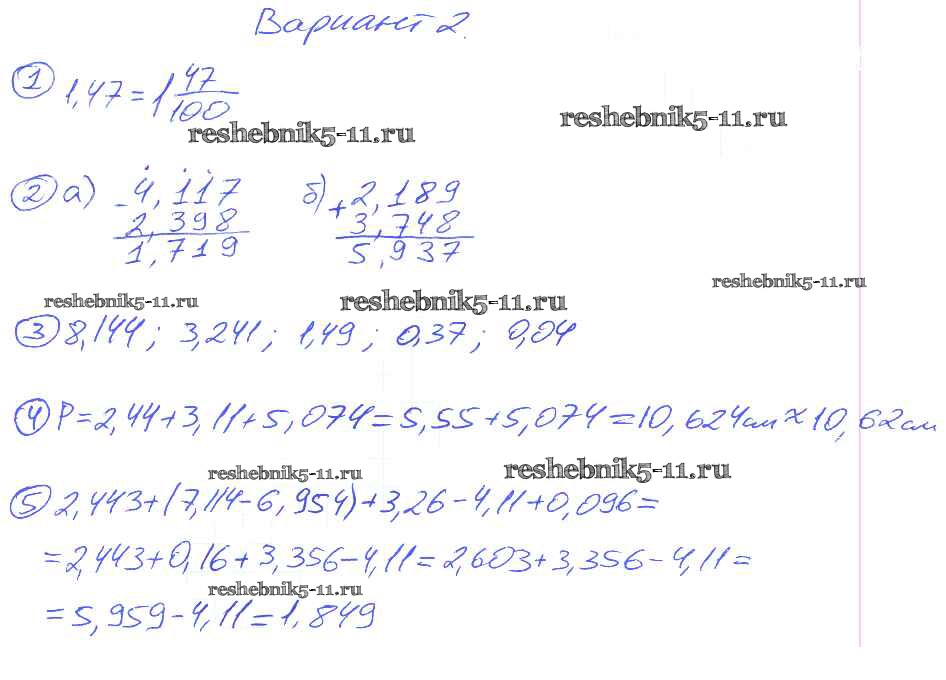 Вариант 2.
① 1,47 = 1 47/100
reshebnik5-11.ru
reshebnik5-11.ru
② а) - 4,117 б) + 2,189
2,398 3,748
1,719 5,937
reshebnik5-11.ru
reshebnik5-11.ru
reshebnik5-11.ru
③ 8,144; 3,241; 1,49; 0,37; 0,04
④ P=2,44+3,11+5,074=5,55+5,074=10,624см≈10,62см
reshebnik5-11.ru
reshebnik5-11.ru
⑤ 2,443+(7,114-6,954)+3,26-4,11+0,096=
=2,443+0,16+3,356-4,11=2,603+3,356-4,11=
reshebnik5-11.ru
=5,959-4,11=1,849